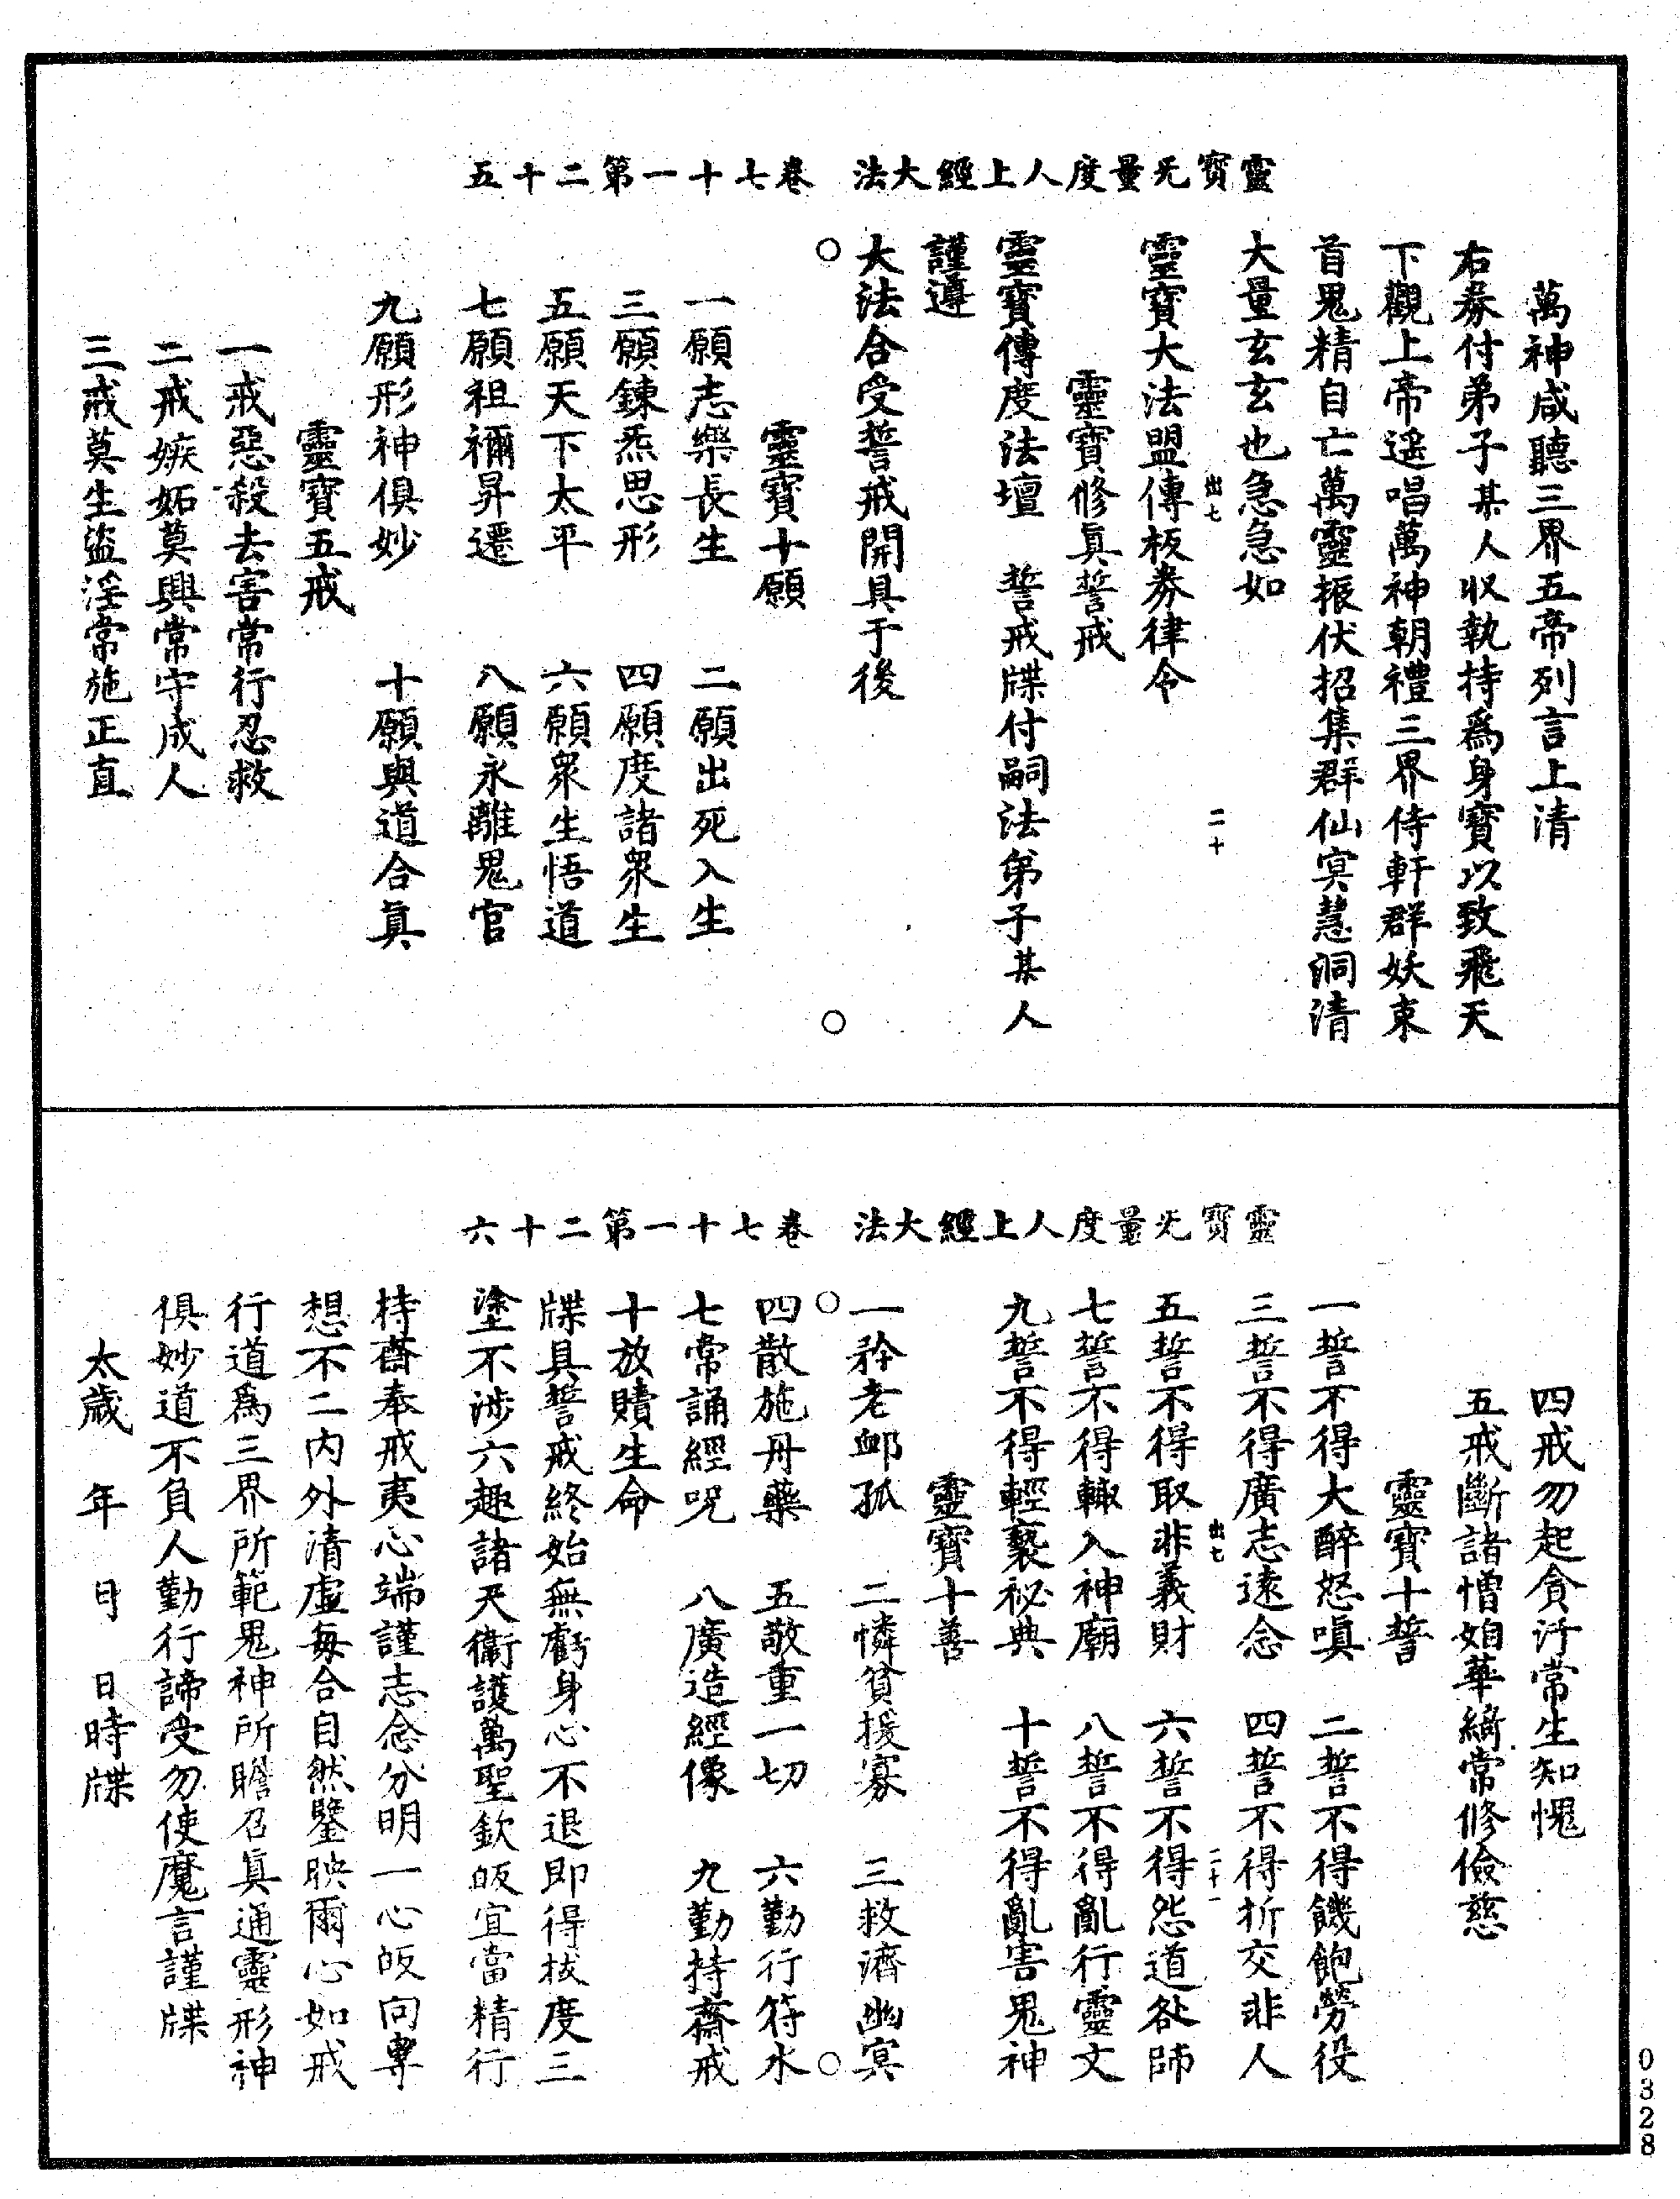 靈寶无量度人上經大法　卷七十一第二十五
萬神咸聽三界五帝列言上清
右券付弟子某人收執持爲身寶以致飛天
下觀上帝遥唱萬神朝禮三界侍軒群妖束
首鬼精自亡萬靈振伏招集群仙冥慧洞清
大量玄玄也急急如
出七　二十
靈寶大法盟傳板券律令
靈寶修眞誓戒
靈寶傳度法壇　誓戒牒付嗣法弟子某人
謹遵
大法合受誓戒開具于後
靈寶十願
一願志樂長生　二願出死入生
三願鍊炁思形　四願度諸衆生
五願天下太平　六願衆生悟道
七願祖禰昇遷　八願永離鬼官
九願形神俱妙　十願與道合眞
靈寶五戒
一戒惡殺去害常行忍救
二戒嫉妬莫興常守成人
三戒莫生盜淫常施正直
靈寶无量度人上經大法　卷七十一第二十六
四戒勿起貪汙常生知愧
五戒斷諸憎姮華綺常修儉慈
靈寶十誓
一誓不得大醉怒嗔　二誓不得饑飽勞役
三誓不得廣志遠念　四誓不得折交非人
出七　二十一
五誓不得取非義財　六誓不得怨道咎師
七誓不得輙入神廟　八誓不得亂行靈文
九誓不得輕褻祕典　十誓不得亂害鬼神
靈寶十善
一矜老䘏孤　二憐貧援寡　三救濟幽冥
四散施丹藥　五敬重一切　六勤行符水
七常誦經呪　八廣造經像　九勤持齋戒
十放贖生命
牒具誓戒終始無虧身心不退即得拔度三
塗不涉六趣諸天衞護萬聖欽皈宜當精行
持齋奉戒夷心端謹志念分明一心皈向專
想不二内外清虛每合自然鑒映爾心如戒
行道爲三界所範鬼神所瞻召眞通靈形神
俱妙道不負人勤行諦受勿使魔言謹牒
太歲　年　月　日時牒
0328